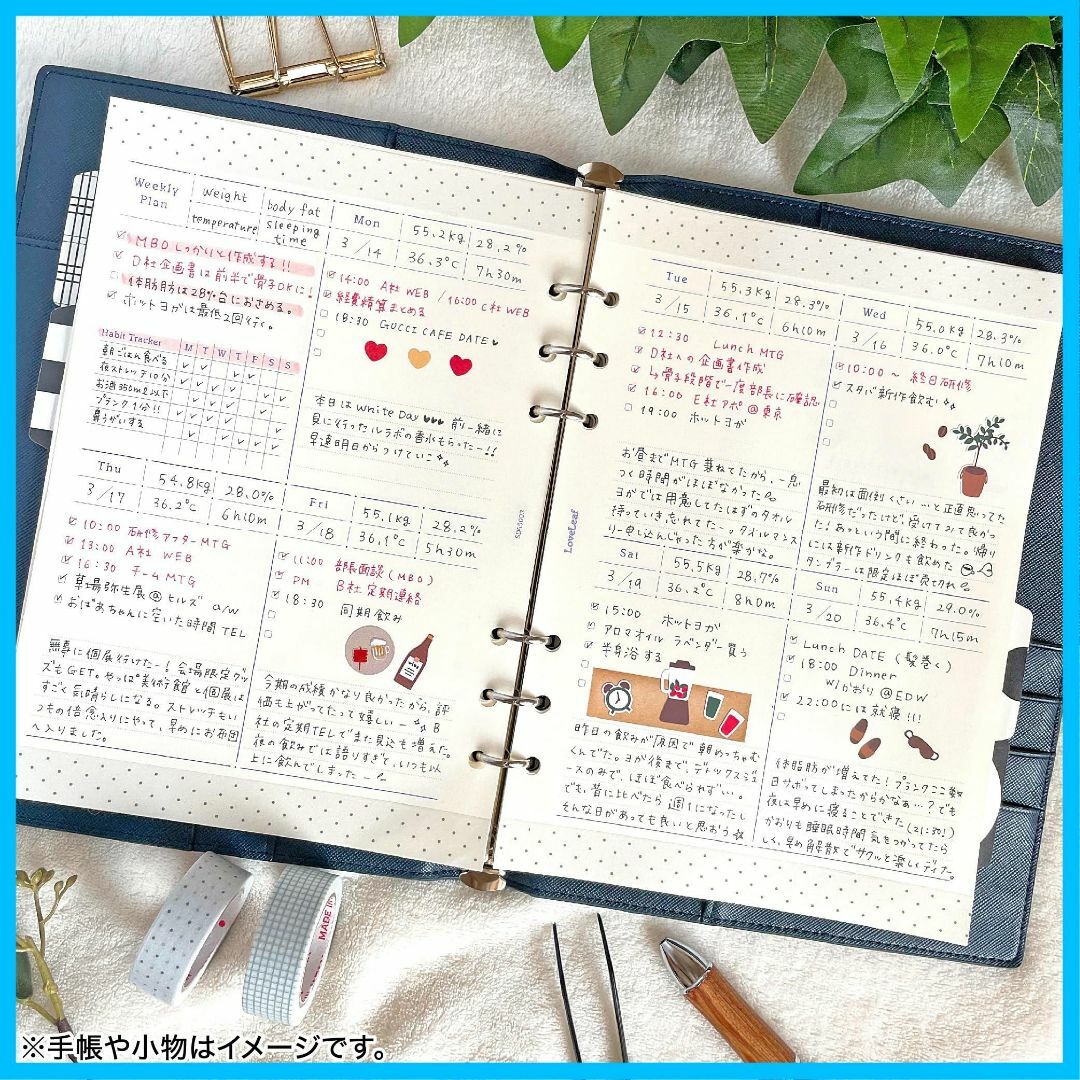 Weekly Plan
weight
body fat
temperature
sleeping time
MBOしっかりと作成する!!
D社企画書は前半で骨子OKに!
体脂肪は28%台におさめる。
ホットヨガは最低2回行く。
Habit Tracker M T W T F S S
朝ごはん食べる
夜ストレッチ10分
お酒350ml以下
プランク1分!!
鼻うがいする
Mon 55.2kg 28.2%
3/14 36.3℃ 7h30m
14:00 A社 WEB / 16:00 C社 WEB
経費精算まとめる
18:30 GUCCI CAFE DATE♥
本日は White Day ♥♥♥ 前に一緒に
見に行ったルラボの香水もらったー!!
早速明日からつけていこ
Thu 54.8kg 28.0%
3/17 36.2℃ 6h10m
10:00 研修アフターMTG
13:00 A社 WEB
16:30 チームMTG
草場弥生展@ヒルズ a/w
おばあちゃんに空いた時間TEL
無事に個展行けたー! 会場限定グッ
ズもGET。やっぱ美術館と個展は
すごく気晴らしになる。ストレッチもい
つもの倍念入りにやって、早めにお布団
へ入りました。
Fri 55.1kg 28.2%
3/18 36.1℃ 5h30m
11:00 部長面談(MBO)
PM B社定期連絡
18:30 同期飲み
今期の成績かなり良かったから、評
価も上がってたって嬉しいー B
社の定期TELでまた見込も増えた。
夜の飲みでは語りすぎて、いつも以
上に飲んでしまったー
LoveLeaf
Tue 55.3kg 28.3%
3/15 36.1℃ 6h10m
12:30 Lunch MTG
D社への企画書作成
↳骨子段階で一度部長に確認
16:00 E社アポ@東京
19:00 ホットヨガ
お昼までMTG兼ねてたから、一息
つく時間がほぼなかった
ヨガでは用意してたはずのタオル
持っていき忘れてたー。タオルマンス
リー申し込んじゃった方が楽かな。
Wed 55.0kg 28.3%
3/16 36.0℃ 7h10m
10:00 ~ 終日研修
スタバ新作飲む
最初は面倒くさい…と正直思ってた
研修だったけど、受けてみて良かっ
た! あっという間に終わった。帰り
には新作ドリンクも飲めた
タンブラーは限定ほぼ売り切れ
Sat 55.5kg 28.7%
3/19 36.2℃ 8h0m
15:00 ホットヨガ
アロマオイル ラベンダー買う
半身浴する
昨日の飲みが原因で朝めっちゃむ
くんでた。ヨガ後まで、デトックスジュ
ースのみで、ほぼ食べらずい。
でも、昔に比べたら週1になったし
そんな日があっても良いと思おう☆
Sun 55.4kg 29.0%
3/20 36.4℃ 7h15m
Lunch DATE (髪巻く)
18:00 Dinner
w/かおり @EDW
22:00には就寝!!!
体脂肪が増えてた! プランクここ数
日サボってしまったからかなぁ…? でも
夜は早めに寝ることできた(21:30!)
かおりも睡眠時間気をつかってたら
しく、早め解散でサクッと楽しくディナー。
MADE IN
※手帳や小物はイメージです。